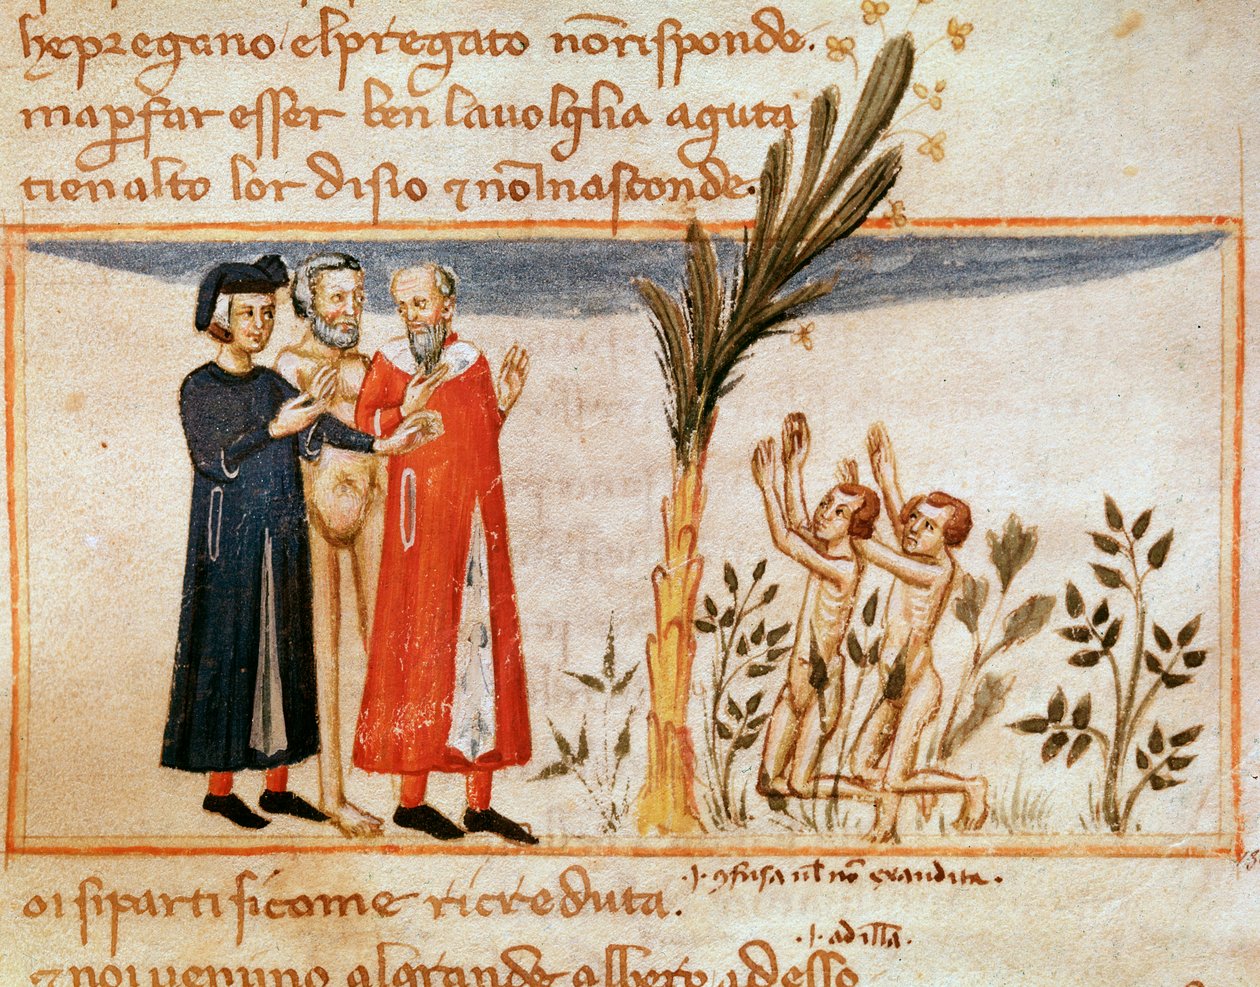 hepregano elpregato nōrisponde.
map̱far esser ben lauolglia aguta
tienalto lor disio ⁊nōlnasconde.
oi siparti sicome ricreduta.
.i. ꝯfusa ul̄ nō exaudita.
.i. adilla.
⁊noi uenimo algrande albero adesso